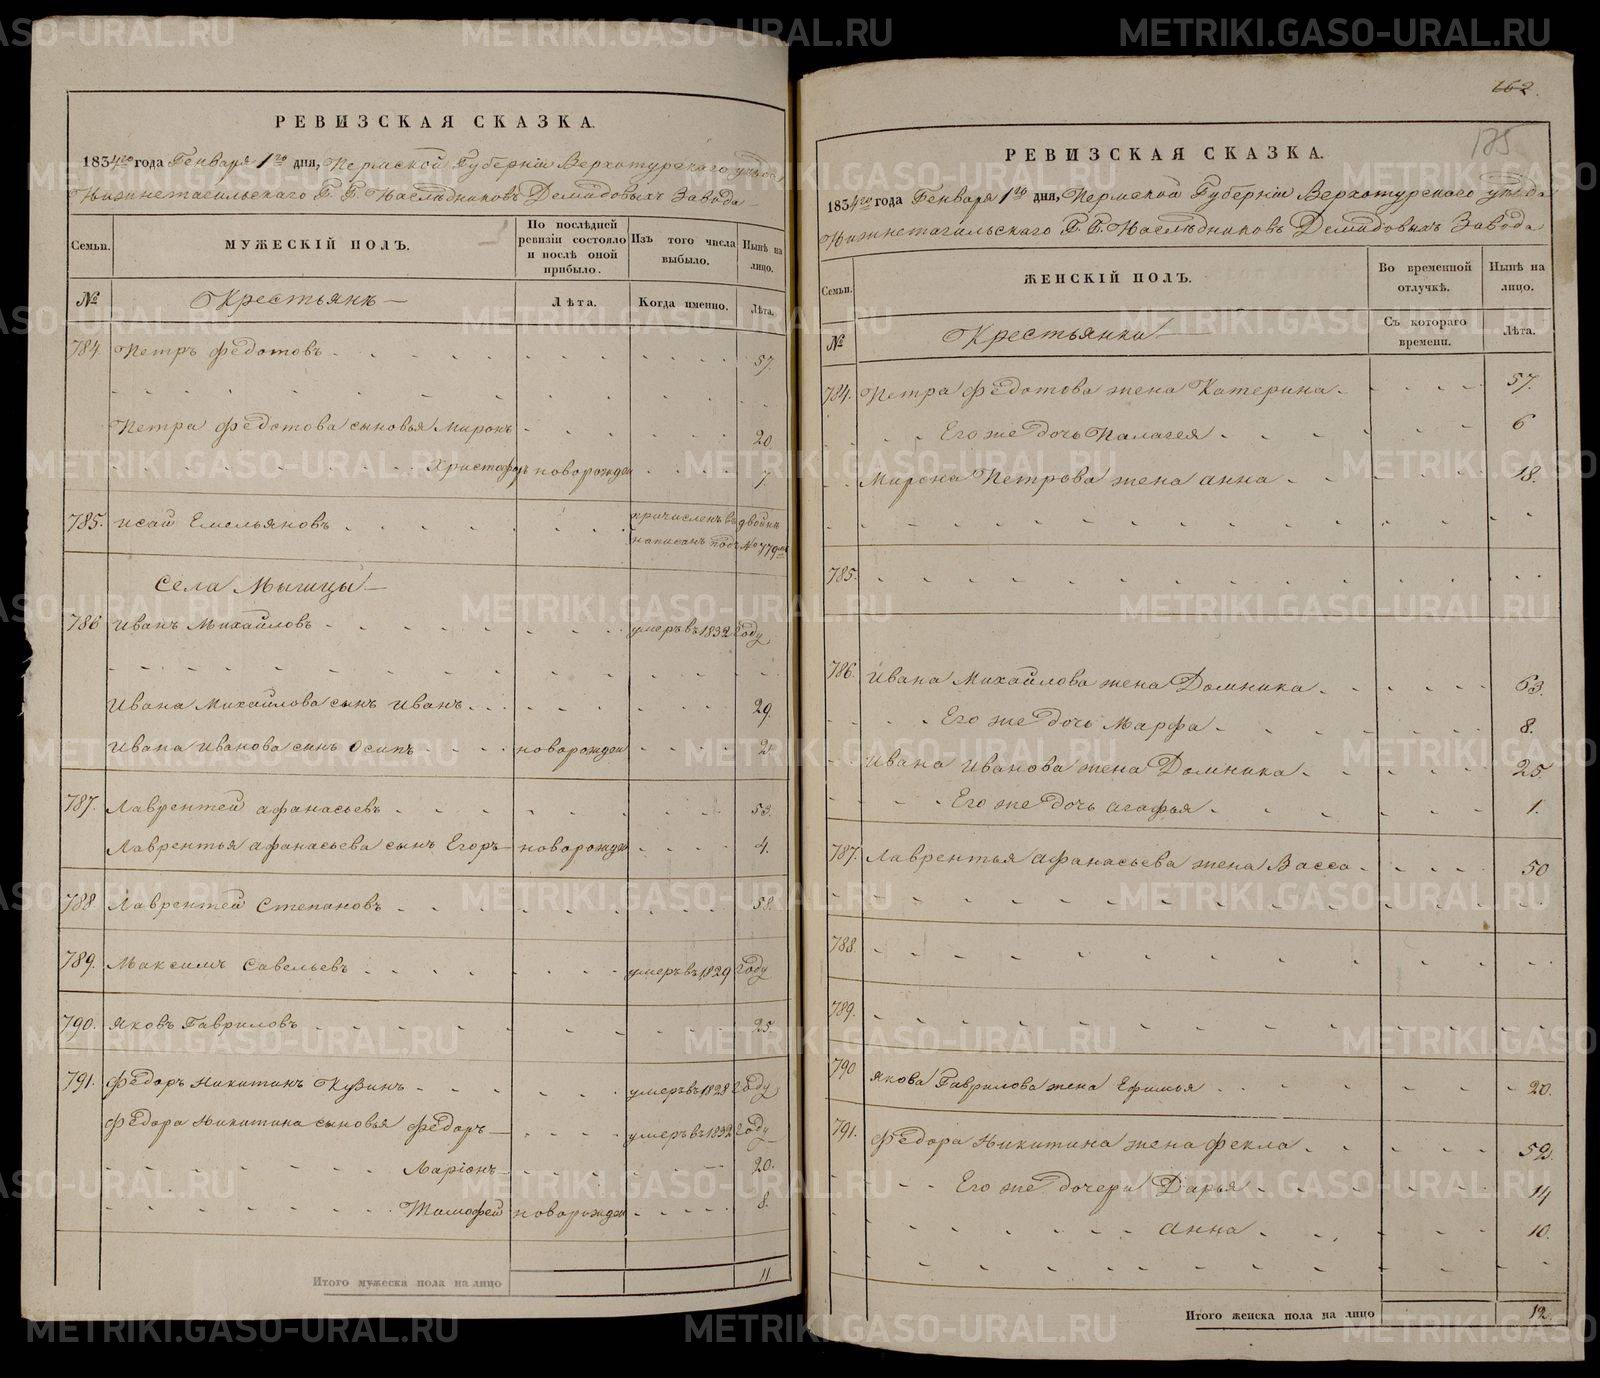 РЕВИЗСКАЯ СКАЗКА.
1834го года Генваря 1го дня, Пермской Губерніи Верхотурскаго уѣзда
Нижнетагильскаго Г. Г. Наслѣдниковъ Демидовыхъ Завода
Семьи. МУЖЕСКІЙ ПОЛЪ. По послѣдней ревизіи состояло и послѣ оной прибыло. Изъ того числа выбыло. Нынѣ на лицо.
№ Крестьянъ Лѣта. Когда именно. Лѣта.
784 Петръ Федотовъ 57.
Петра Федотова сыновья Миронъ 20
Христофоръ новорожден 7
785. Исай Емельяновъ причисленъ въ двойнѣ
написанъ подъ № 779мъ
Села Мышцы
786 Иванъ Михайловъ умеръ въ 1832 году
Ивана Михайлова сынъ Иванъ 29.
Ивана Иванова сынъ Осипъ новорожден 2
787. Лаврентей Афанасьевъ 53.
Лаврентья Афанасьева сынъ Егоръ новорожден 4.
788 Лаврентей Степановъ 58.
789. Максимъ Савельевъ умеръ въ 1829 году
790. Яковъ Гавриловъ 25.
791. Федоръ Никитинъ Кузинъ умеръ въ 1828 году
Федора Никитина сыновья Федоръ умеръ въ 1832 году
Ларіонъ 20.
Тимофей новорожден 8.
Итого мужеска пола на лицо 11
162.
175
РЕВИЗСКАЯ СКАЗКА.
1834го года Генваря 1го дня, Пермской Губерніи Верхотурскаго уѣзда
Нижнетагильскаго Г. Г. Наслѣдниковъ Демидовыхъ Завода
Семьи. ЖЕНСКІЙ ПОЛЪ. Во временной отлучкѣ. Нынѣ на лицо.
№ Крестьянки Съ котораго времени. Лѣта.
784. Петра Федотова жена Катерина 57.
Его же дочь Палагея 6
Мирона Петрова жена Анна 18.
785.
786. Ивана Михайлова жена Домника 63.
Его же дочь Марфа 8.
Ивана Иванова жена Домника 25
Его же дочь Агафья 1.
787. Лаврентья Афанасьева жена Васса 50
788.
789.
790 Якова Гаврилова жена Ефимья 20.
791. Федора Никитина жена Фекла 59.
Его же дочери Дарья 14
Анна 10.
Итого женска пола на лицо 12
METRIKI.GASO-URAL.RU